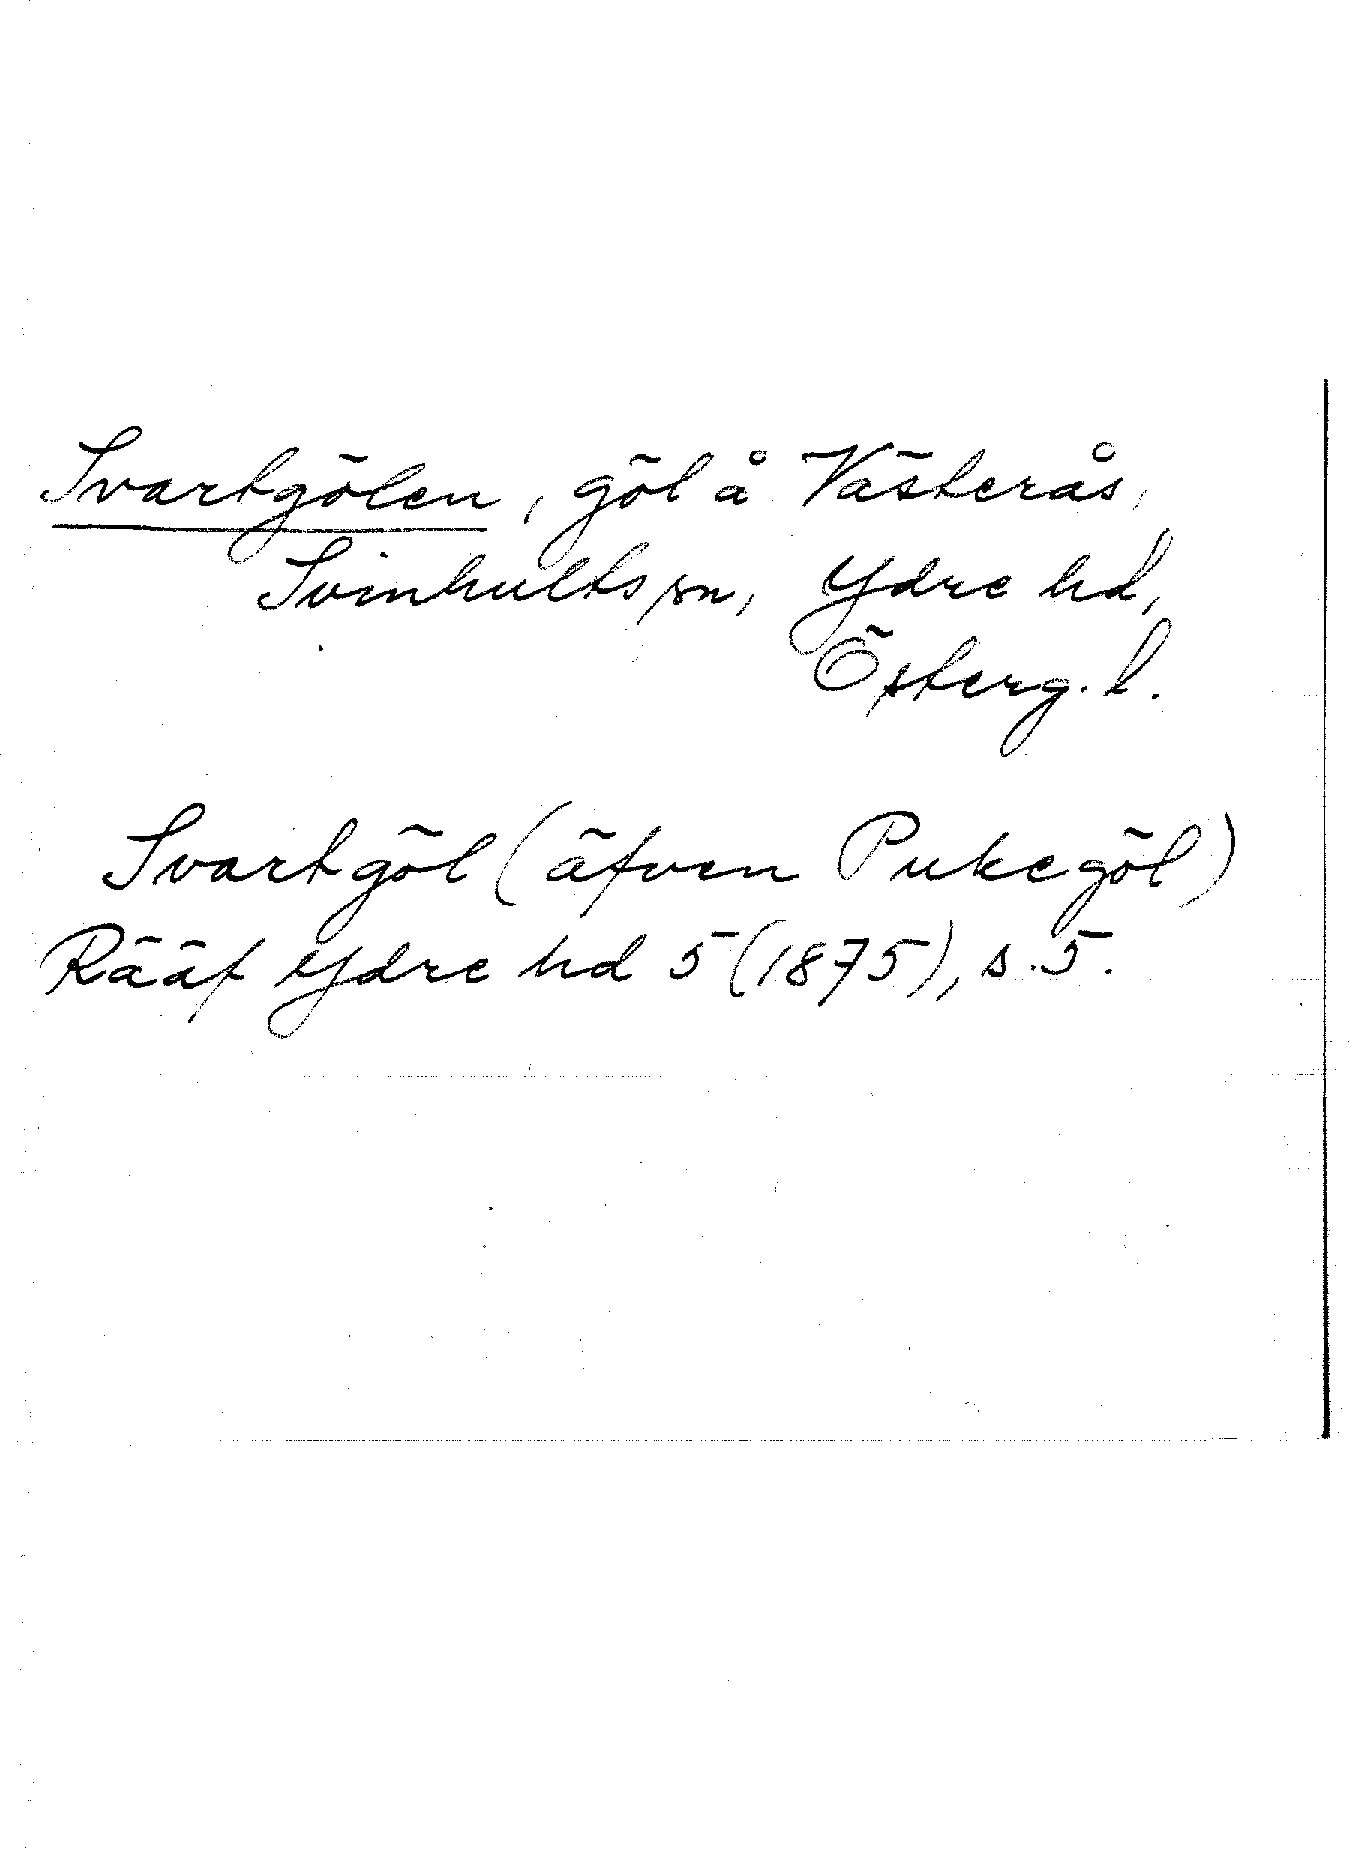 Svartgölen, göl å Västerås,
Svinhults sn, Ydre hd,
Österg. l.
Svartgöl (äfven Pukegöl)
Rääf Ydre hd 5 (1875), s. 5.